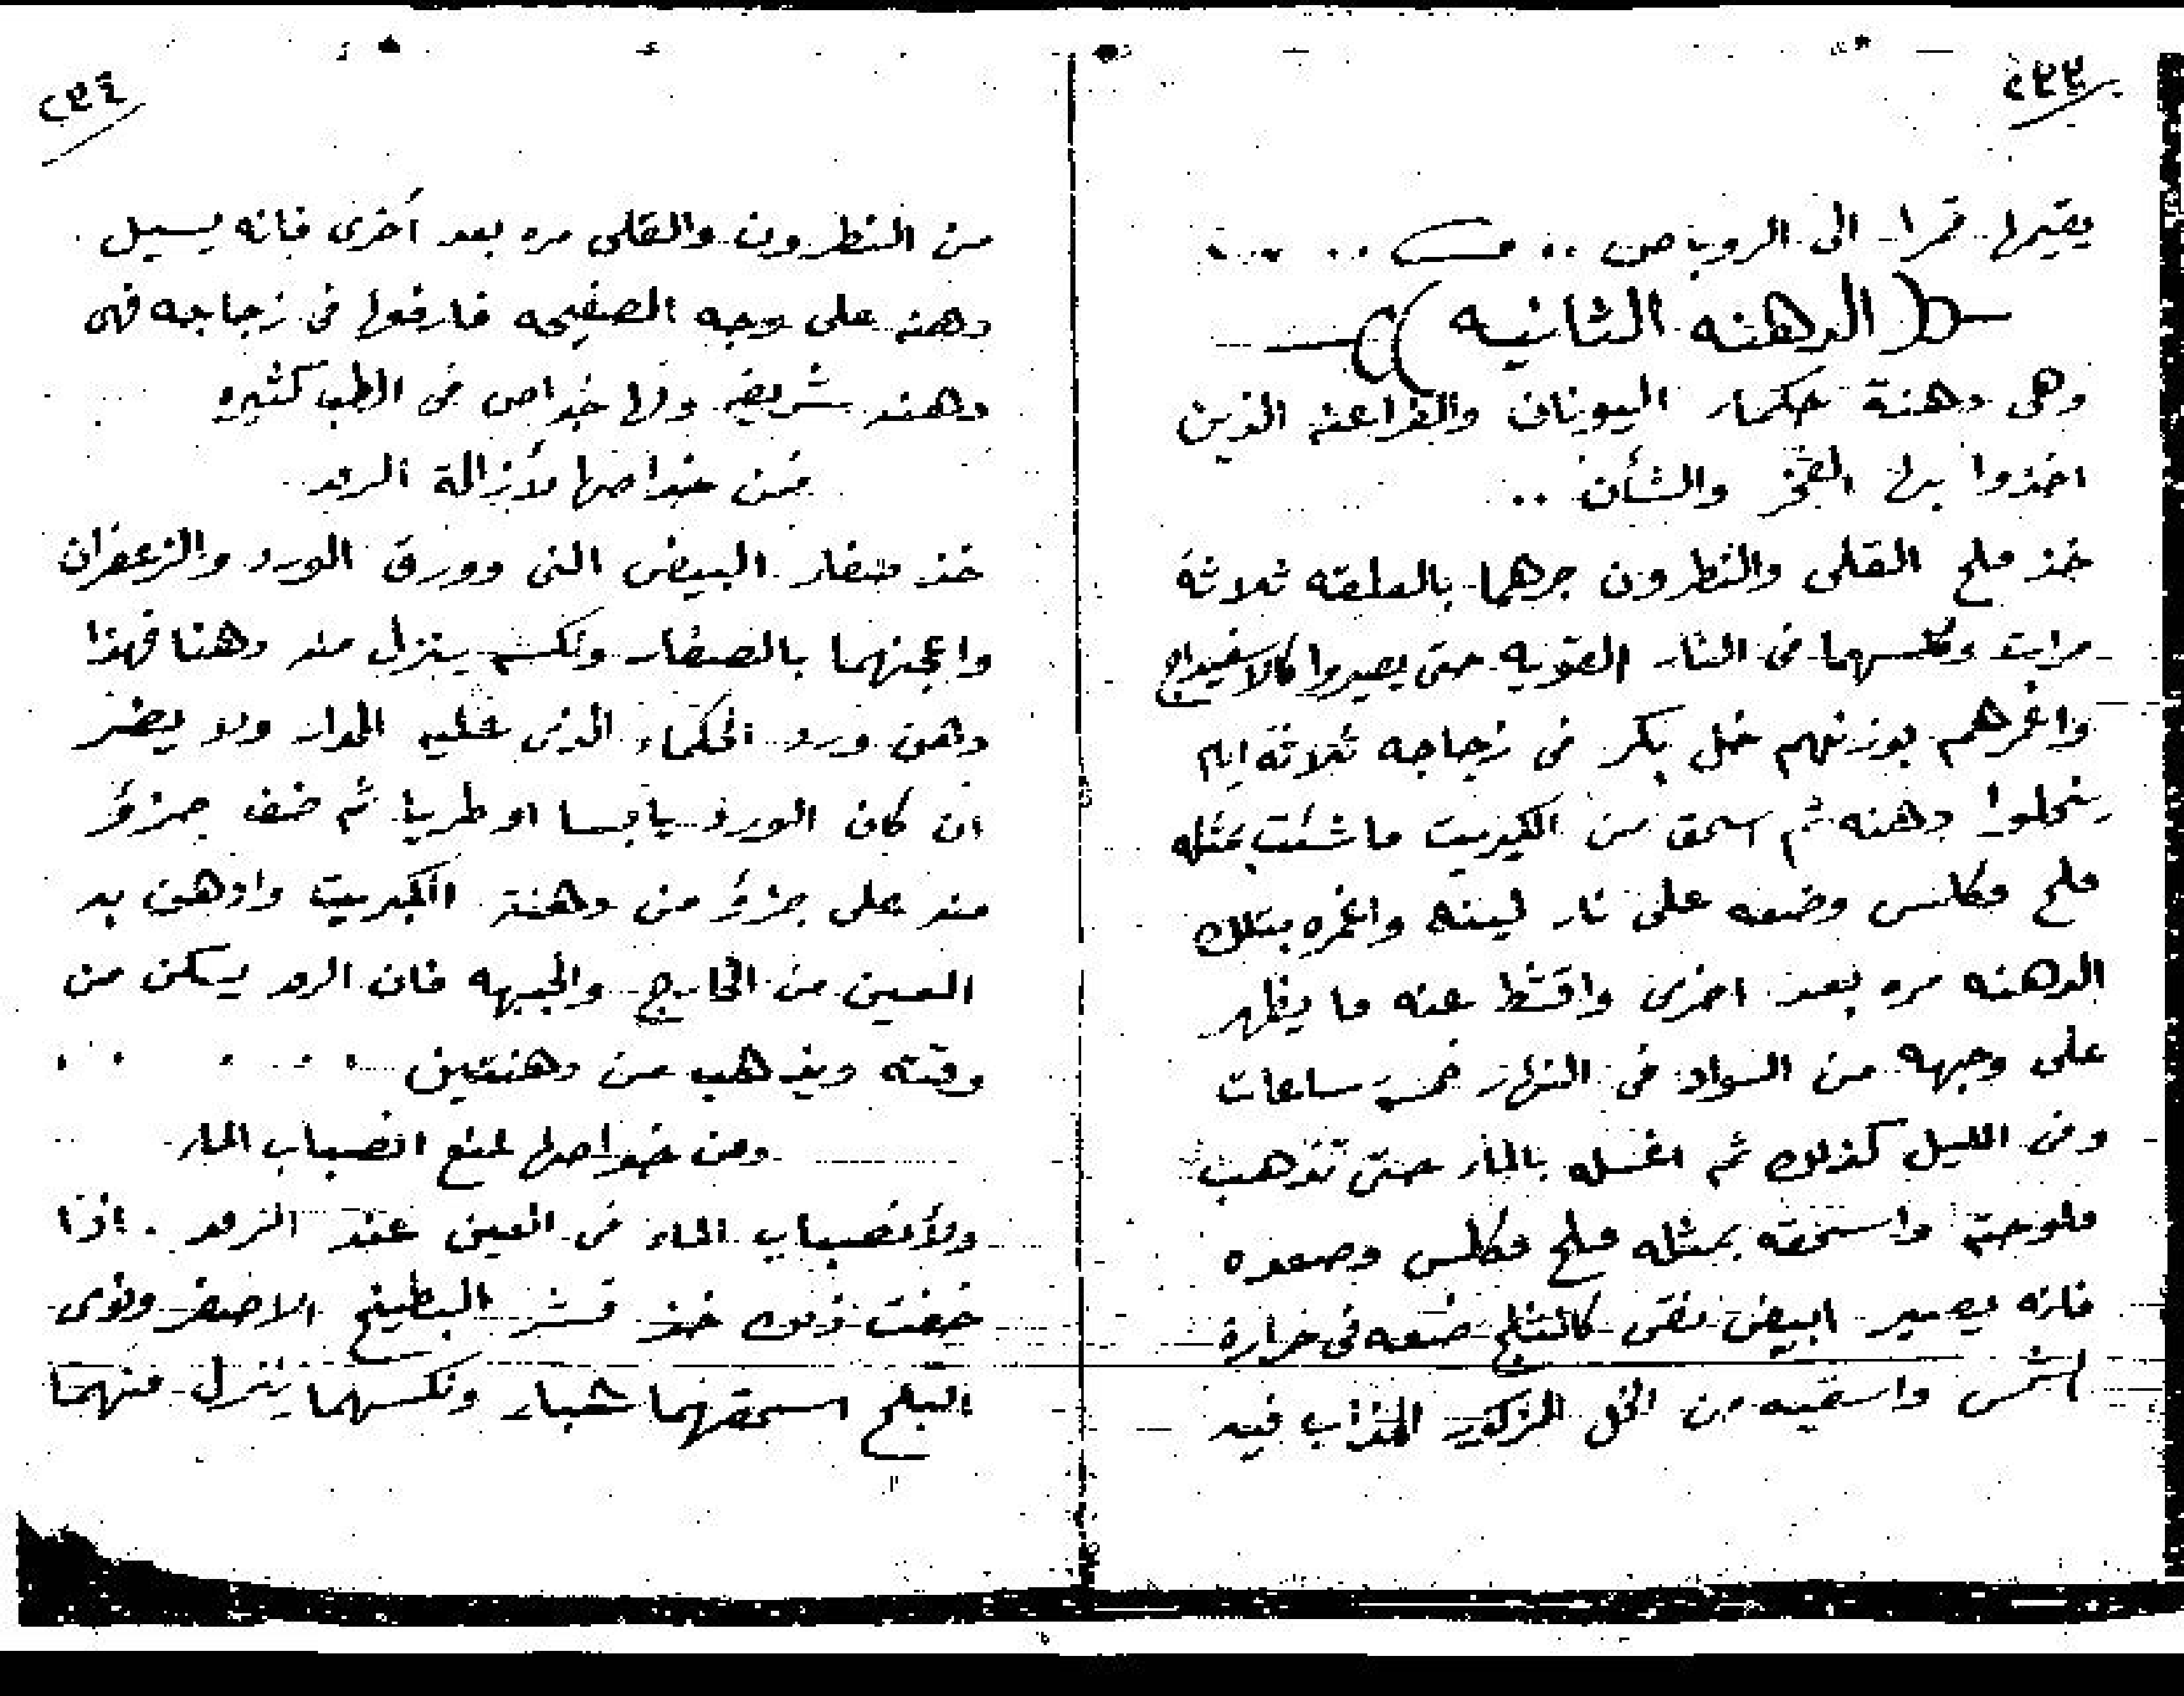 ٢٣٣
يقيمها قمرا الى الروباص ..
(الدهنه الثانيه)
وهى دهنة حكماء اليونان والفراعنه الذين
اخذوا بها الفخر والشأن ..
خذ ملح القلى والنطرون جرهما بالعلقه ثلاثة
مرات وكلسهما فى النار القويه حتى يصيروا كالاسفيداج
واغمرهم بوزنهم خل بكر فى زجاجه ثلاثة ايام
ينحلوا دهنه ثم اسحق من الكبريت ما شئت بمثله
ملح مكلس وضعه على نار لينه واغمره بتلك
الدهنه مره بعد اخرى واقشط عنه ما يظهر
على وجهه من السواد فى النهار خمسة ساعات
وفى الليل كذلك ثم اغسله بالماء حتى تذهب
ملوحته واسحقه بمثله ملح مكلس وصعده
فانه يصير ابيض نقى كالثلج ضعه فى حرارة
الشمس واسقيه من الخل المذكور المذاب فيه
٢٣٤
من النطرون والقلى مره بعد أخرى فانه يسيل
دهنه على وجه الصفيحه فارفعها فى زجاجه فهى
دهنه شريفه ولها خواص فى الطب كثيره
فمن خواصها لأزالة الرمد
خذ صفار البيض النى وورق الورد والزعفران
واعجنهما بالصفار ونكسه ينزل منه دهنا فهذا
دهن ورد الحكماء الذى عليه المدار ولا يضر
ان كان الورد يابسا او طريا ثم ضف جزؤ
منه على جزؤ من دهنة الكبريت وادهن به
العين من الخارج والجبهه فان الرمد يسكن من
وقته ويذهب من دهنتين
ومن خواصها لمنع انصباب الماء
ولأنصباب الماء فى العين عند الرمد . اذا
خفت ذلك خذ قشر البطيخ الاصفر ونوى
البلح اسحقهما هباء ونكسهما ينزل منهما